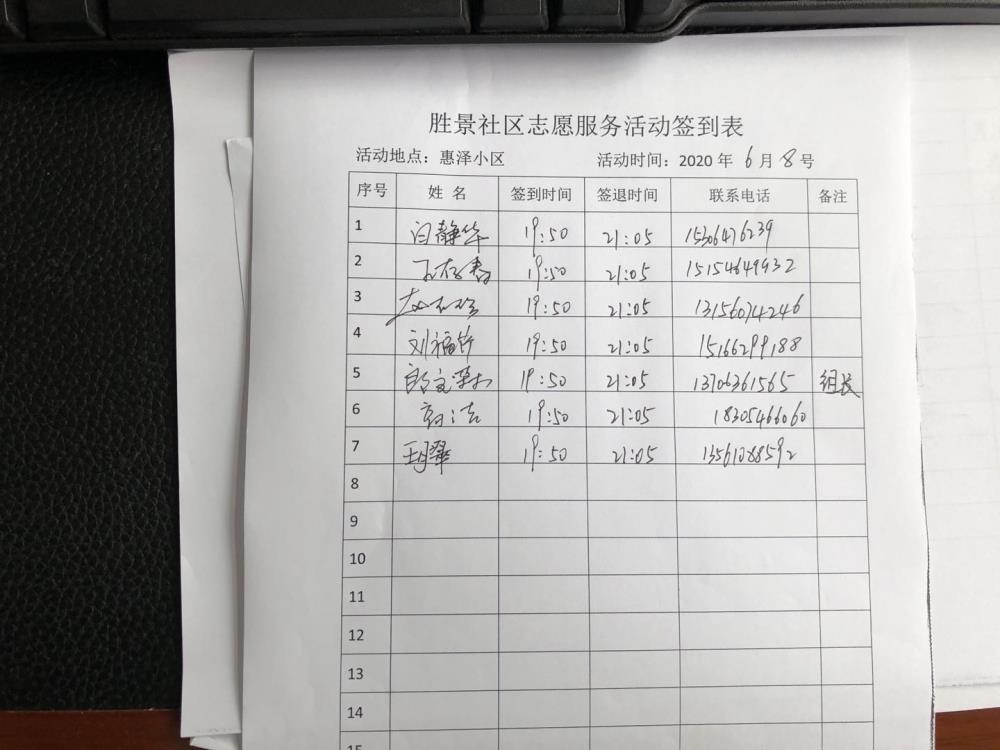 胜景社区志愿服务活动签到表
活动地点：惠泽小区 活动时间：2020 年 6 月 8 号
序号 姓 名 签到时间 签退时间 联系电话 备注
1 闫静华 19:50 21:05 15306476239
2 19:50 21:05 15154649932
3 19:50 21:05 13156074246
4 刘福竹 19:50 21:05 15166299188
5 19:50 21:05 13706361565 组长
6 19:50 21:05 18305466060
7 19:50 21:05 13561088592
8
9
10
11
12
13
14
15